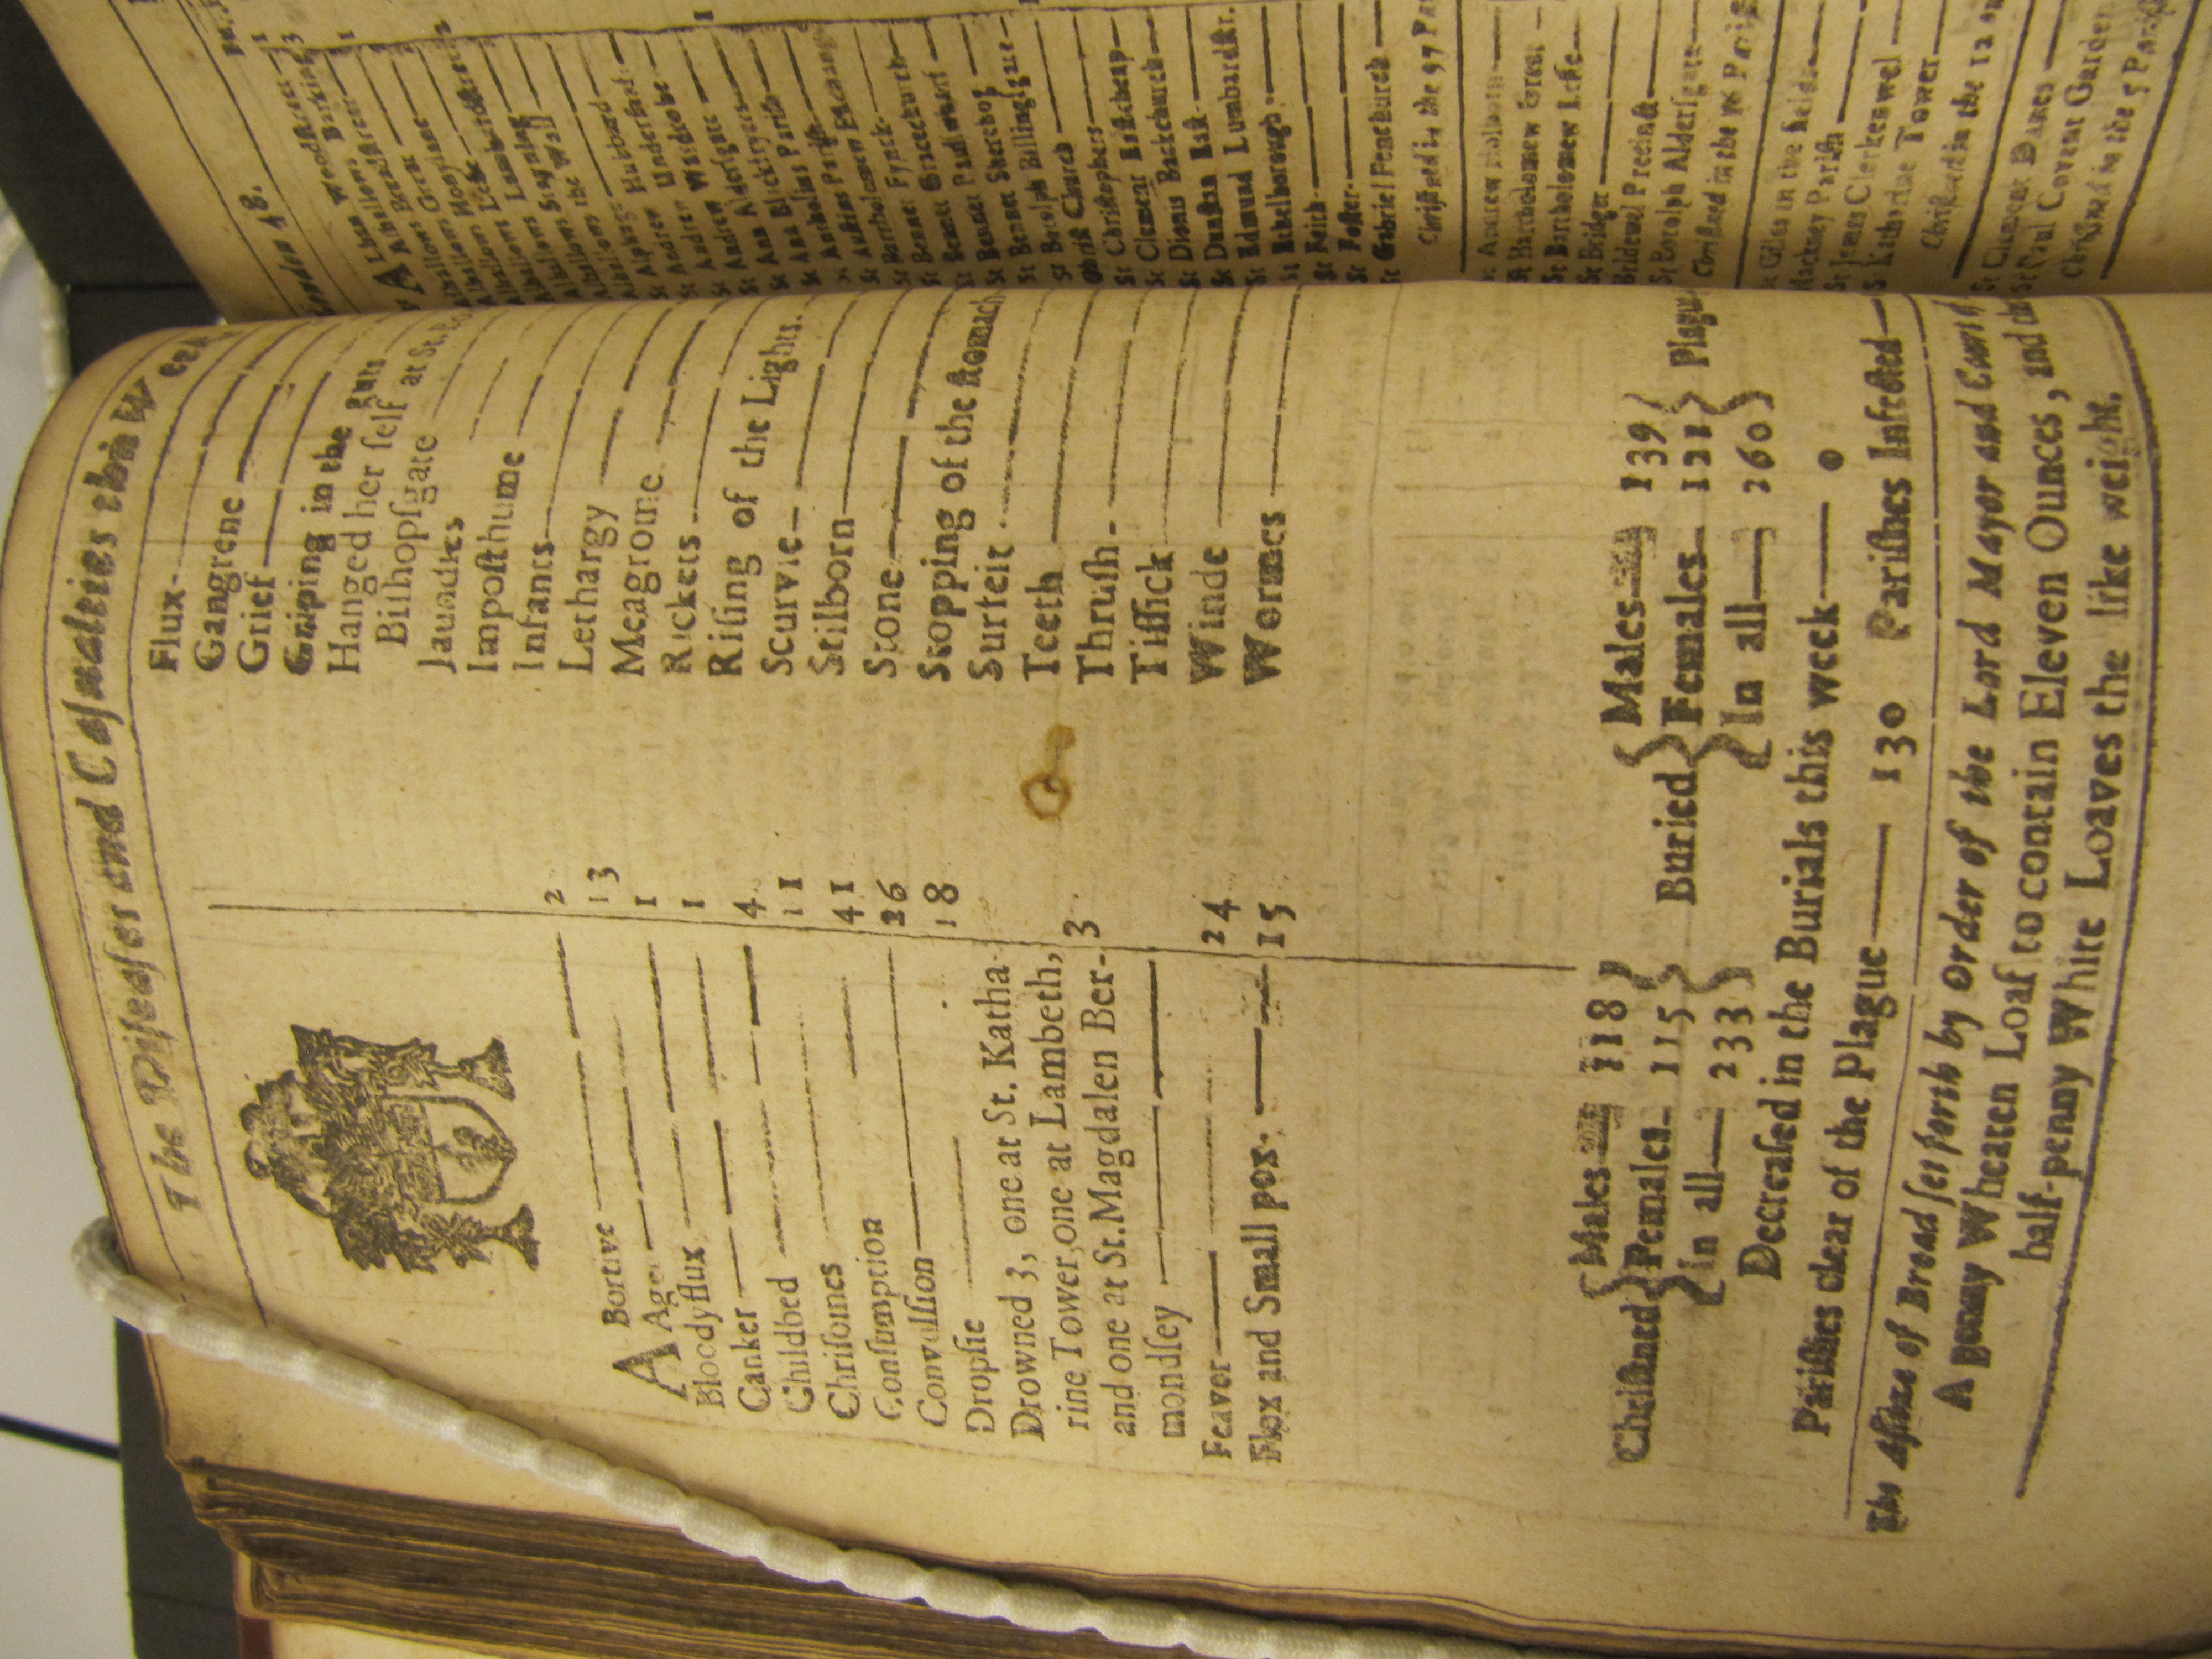 The Diseases and Casualties this Week
A Bortive 2
Age 13
Bloody flux 1
Canker 1
Childbed 4
Chrisomes 11
Consumption 41
Convulsion 26
Dropsie 18
Drowned 3, one at St. Katha-
rine Tower, one at Lambeth,
and one at St. Magdalen Ber-
mondsey 3
Feaver 24
Flox and Small pox 15
Flux
Gangrene
Grief
Griping in the guts
Hanged her self at St. Bo
Bishopsgate
Jaundies
Imposthume
Infants
Lethargy
Meagrome
Rickets
Rising of the Lights.
Scurvie
Stilborn
Stone
Stopping of the stomach
Surfeit
Teeth
Thrush
Tissick
Winde
Wormes
Christned { Males 118
Females 115
In all 233 }
Buried { Males 139
Females 121
In all 260 } Plague
Decreased in the Burials this week 0
Parishes clear of the Plague 130 Parishes Infected
The Assize of Bread set forth by Order of the Lord Mayor and Court
A penny Wheaten Loaf to contain Eleven Ounces, and
half-penny White Loaves the like weight.
London 48.
St Alban Woodstreet 1
Alhallows Barking 3
Alhallows Breadstreet 1
Alhallows Great
Alhallows Honylane
Alhallows Lesse
Alhallows Lumbardstreet 2
Alhallows Stayning
Alhallows the Wall
St Alphage
St Andrew Hubbard
St Andrew Undershaft
St Andrew Wardrobe
St Ann Aldersgate 1
St Ann Blackfryers
St Antholins Parish
St Austins Parish
St Bartholomew Exchange
St Bennet Fynck
St Bennet Gracechurch
St Bennet Paulswharf
St Bennet Sherehog
St Botolph Billingsgate
Christ Church
St Christophers
St Clement Eastcheap
St Dionis Backchurch
St Dunstan East
St Edmund Lumbardstr.
St Ethelborough
St Faith
St Foster
St Gabriel Fenchurch
Christned in the 97 Par
St Andrew Holborn
St Bartholomew Great
St Bartholomew Lesse
St Bridget
Bridewel Precinct
St Botolph Aldersgate
Christned in the 16 Paris
St Giles in the fields
Hackney Parish
St James Clerkenwel
St Katharine Tower
Christned in the 12
St Clement Danes
St Paul Covent Garden
Christned in the 5 Parish